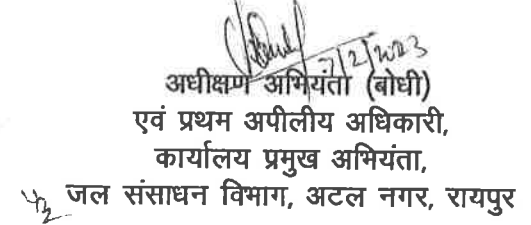 7/2/2023
अधीक्षण अभियंता (बोधी)
एवं प्रथम अपीलीय अधिकारी,
कार्यालय प्रमुख अभियंता,
जल संसाधन विभाग, अटल नगर, रायपुर